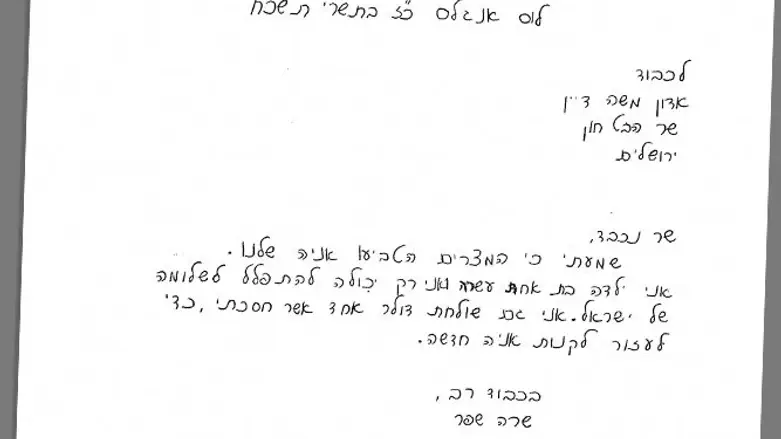 לוס אנגלס כ״ז בתשרי תשכח
לכבוד
אדון משה דיין
שר הבטחון
ירושלים
שר נכבד,
שמעתי כי המצרים הטביעו אניה שלנו.
אני ילדה בת אחת עשרה ואני רק יכולה להתפלל לשלומה
של ישראל. אני גם שולחת דולר אחד אשר חסכתי, כדי
לעזור לקנות אניה חדשה.
בכבוד רב,
שרה שפר